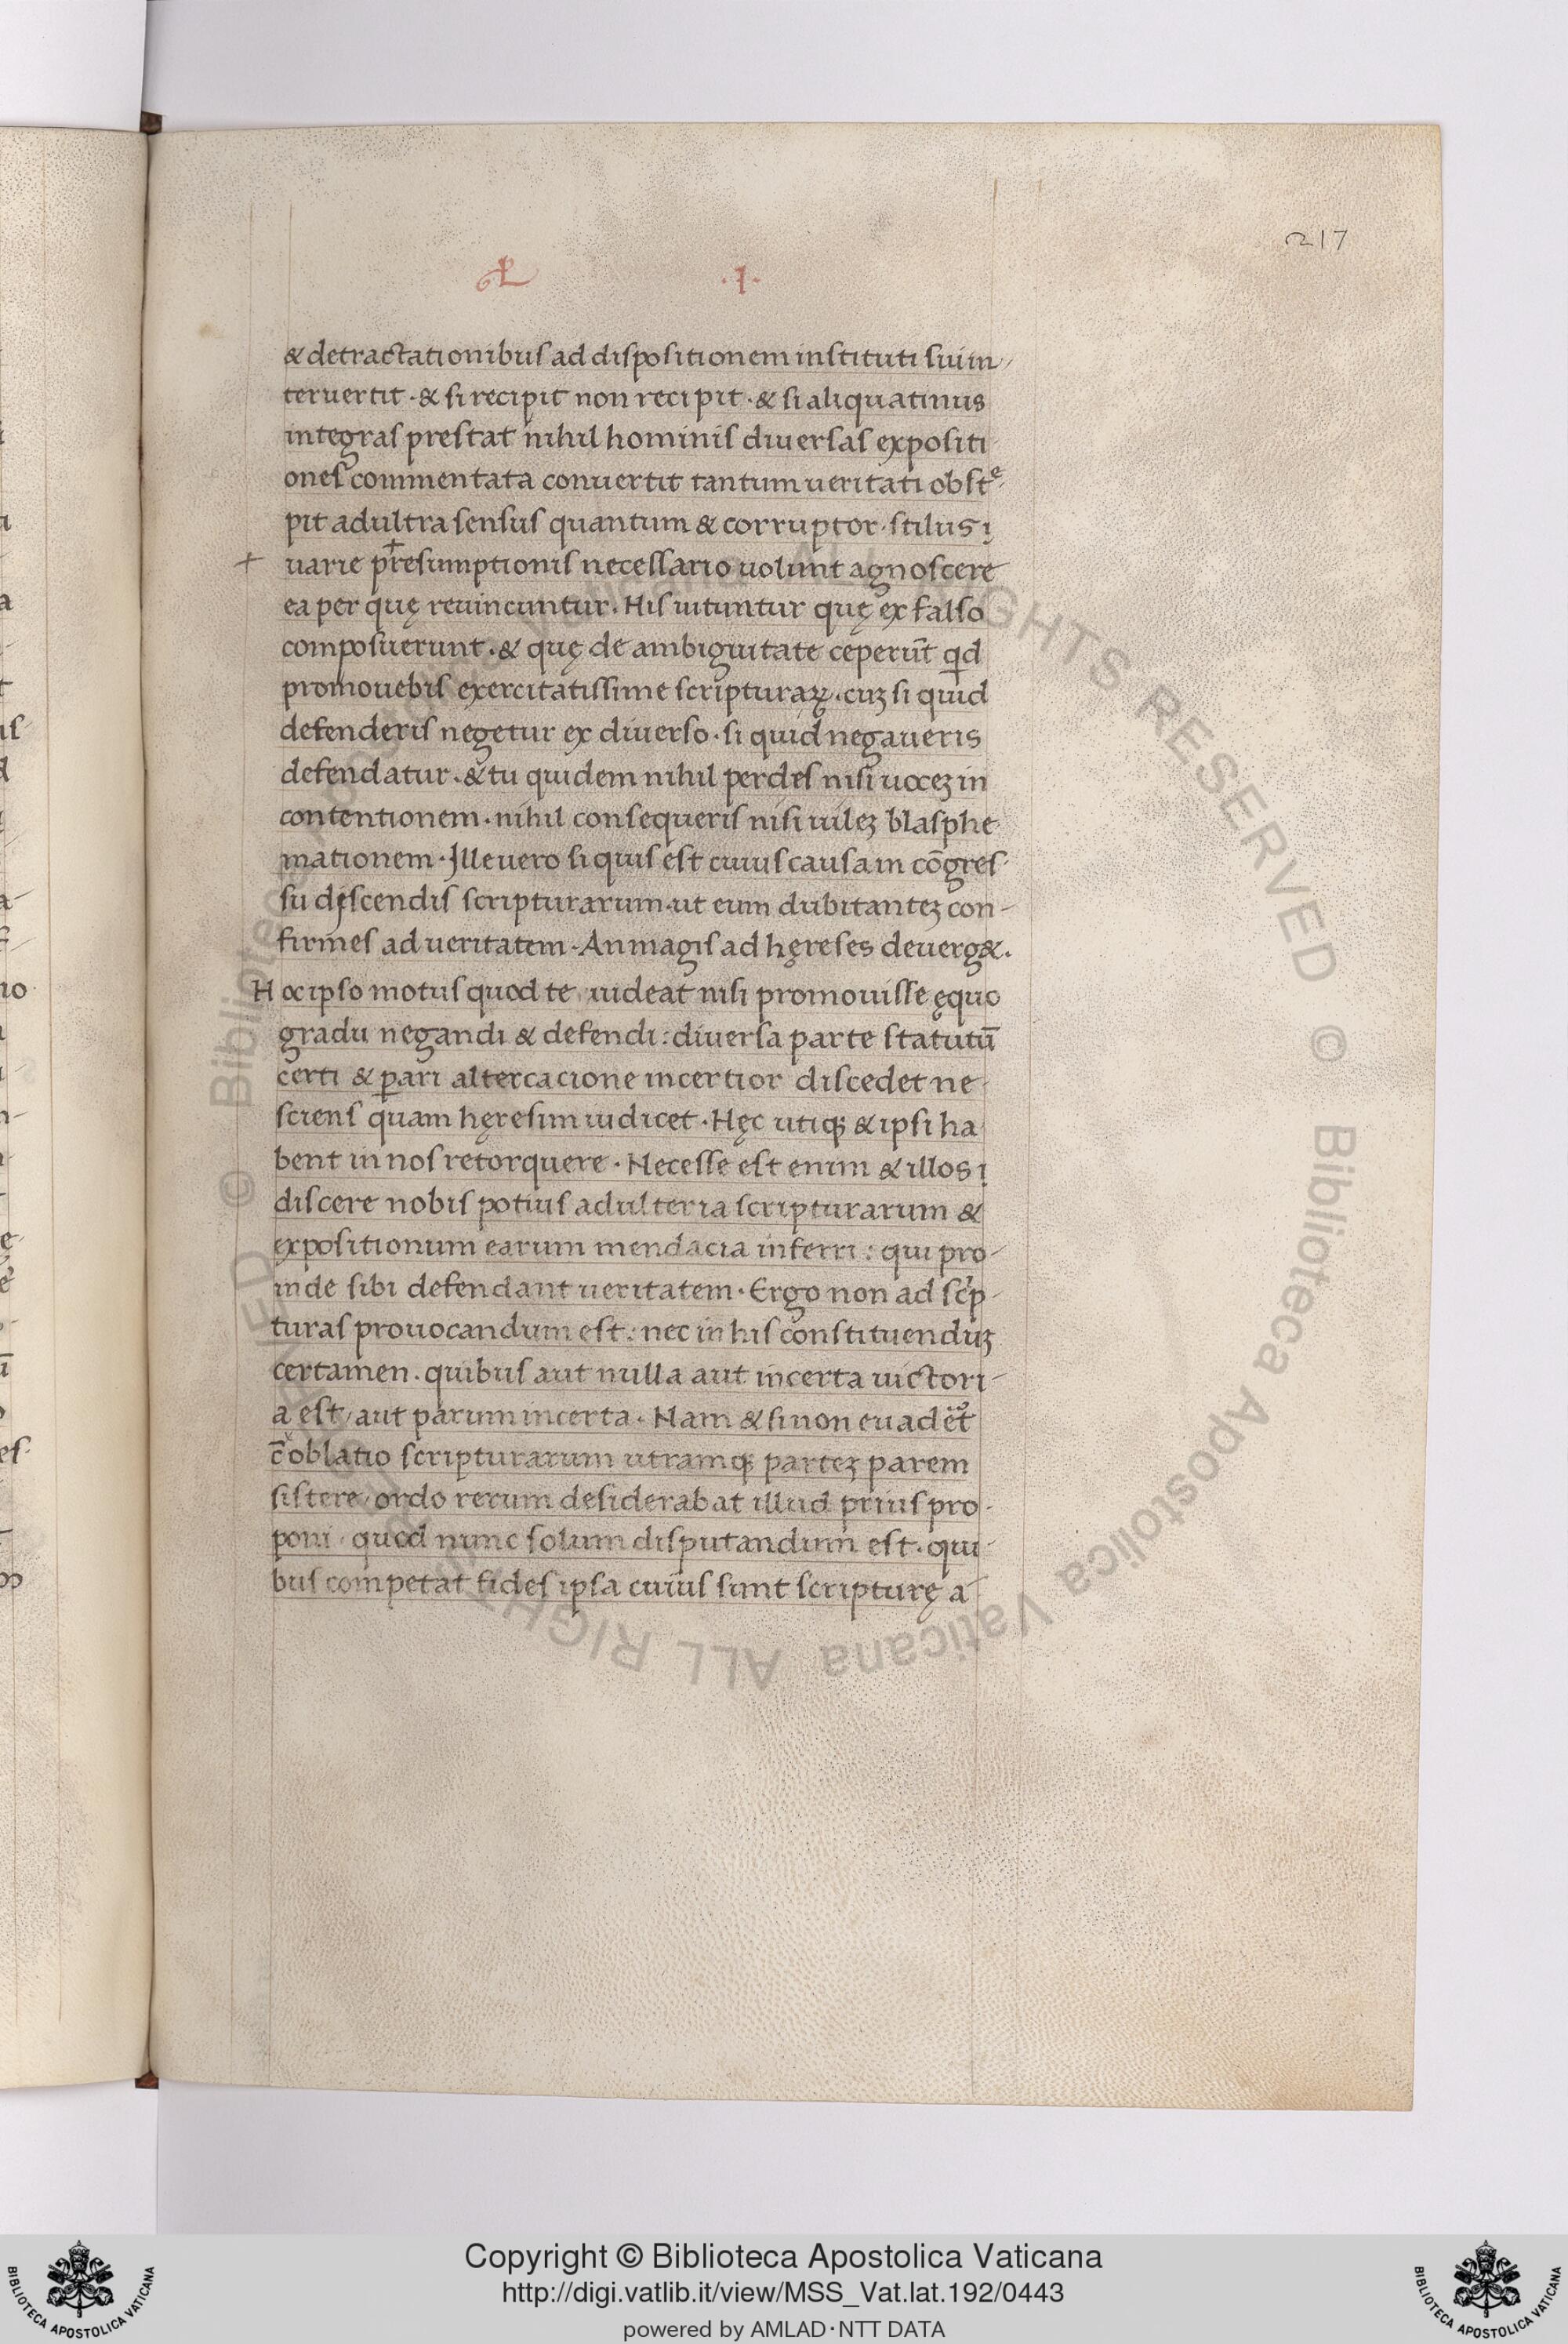 217
.I.
& detractationibus ad dispositionem instituti sui in-
teruertit · & si recipit non recipit · & si aliquatinus
integras prestat nihil hominis diuersas expositi-
ones commentata conuertit tantum ueritati obstᵉ-
pit adultra sensus quantum & corruptor · stilus ;
+ uarie presumptionis necessario uolunt agnoscere
ea per quę reuincuntur. His utuntur quę ex falso
composuerunt · & quę de ambiguitate ceperūt qd
promouebis exercitatissime scripturaꝝ · cuꝫ si quid
defenderis negetur ex diuerso · si quid negaueris
defendatur · & tu quidem nihil perdes nisi uoceꝫ in
contentionem · nihil consequeris nisi uileꝫ blasphe-
mationem · Ille uero si quis est cuius causa in cōgres-
su descendis scripturarum · ut eum dubitanteꝫ con-
firmes ad ueritatem · An magis ad hęreses deuerg&.
Hoc ipso motus quod te uideat nisi promouisse ęquo
gradu negandi & defendi : diuersa parte statutū
certi & pari altercacione incertior discedet ne-
sciens quam hęresim iudicet · Hęc utiqꝫ & ipsi ha-
bent in nos retorquere · Necesse est enim & illos ;
discere nobis potius adulteria scripturarum &
expositionum earum mendacia inferri : qui pro-
inde sibi defendant ueritatem · Ergo non ad sc̄p-
turas prouocandum est : nec in his constituenduꝫ
certamen · quibus aut nulla aut incerta uictori-
a est / aut parum incerta · Nam & si non euadet
c̄oblatio scripturarum utramqꝫ parteꝫ parem
sistere / ordo rerum desiderabat illud prius pro-
poni · quod nunc solum disputandum est · qui-
bus competat fides ipsa cuius sunt scripturę a
© Biblioteca Apostolica Vaticana ALL RIGHTS RESERVED
Copyright © Biblioteca Apostolica Vaticana
http://digi.vatlib.it/view/MSS_Vat.lat.192/0443
powered by AMLAD·NTT DATA
BIBLIOTECA APOSTOLICA VATICANA
BIBLIOTECA APOSTOLICA VATICANA